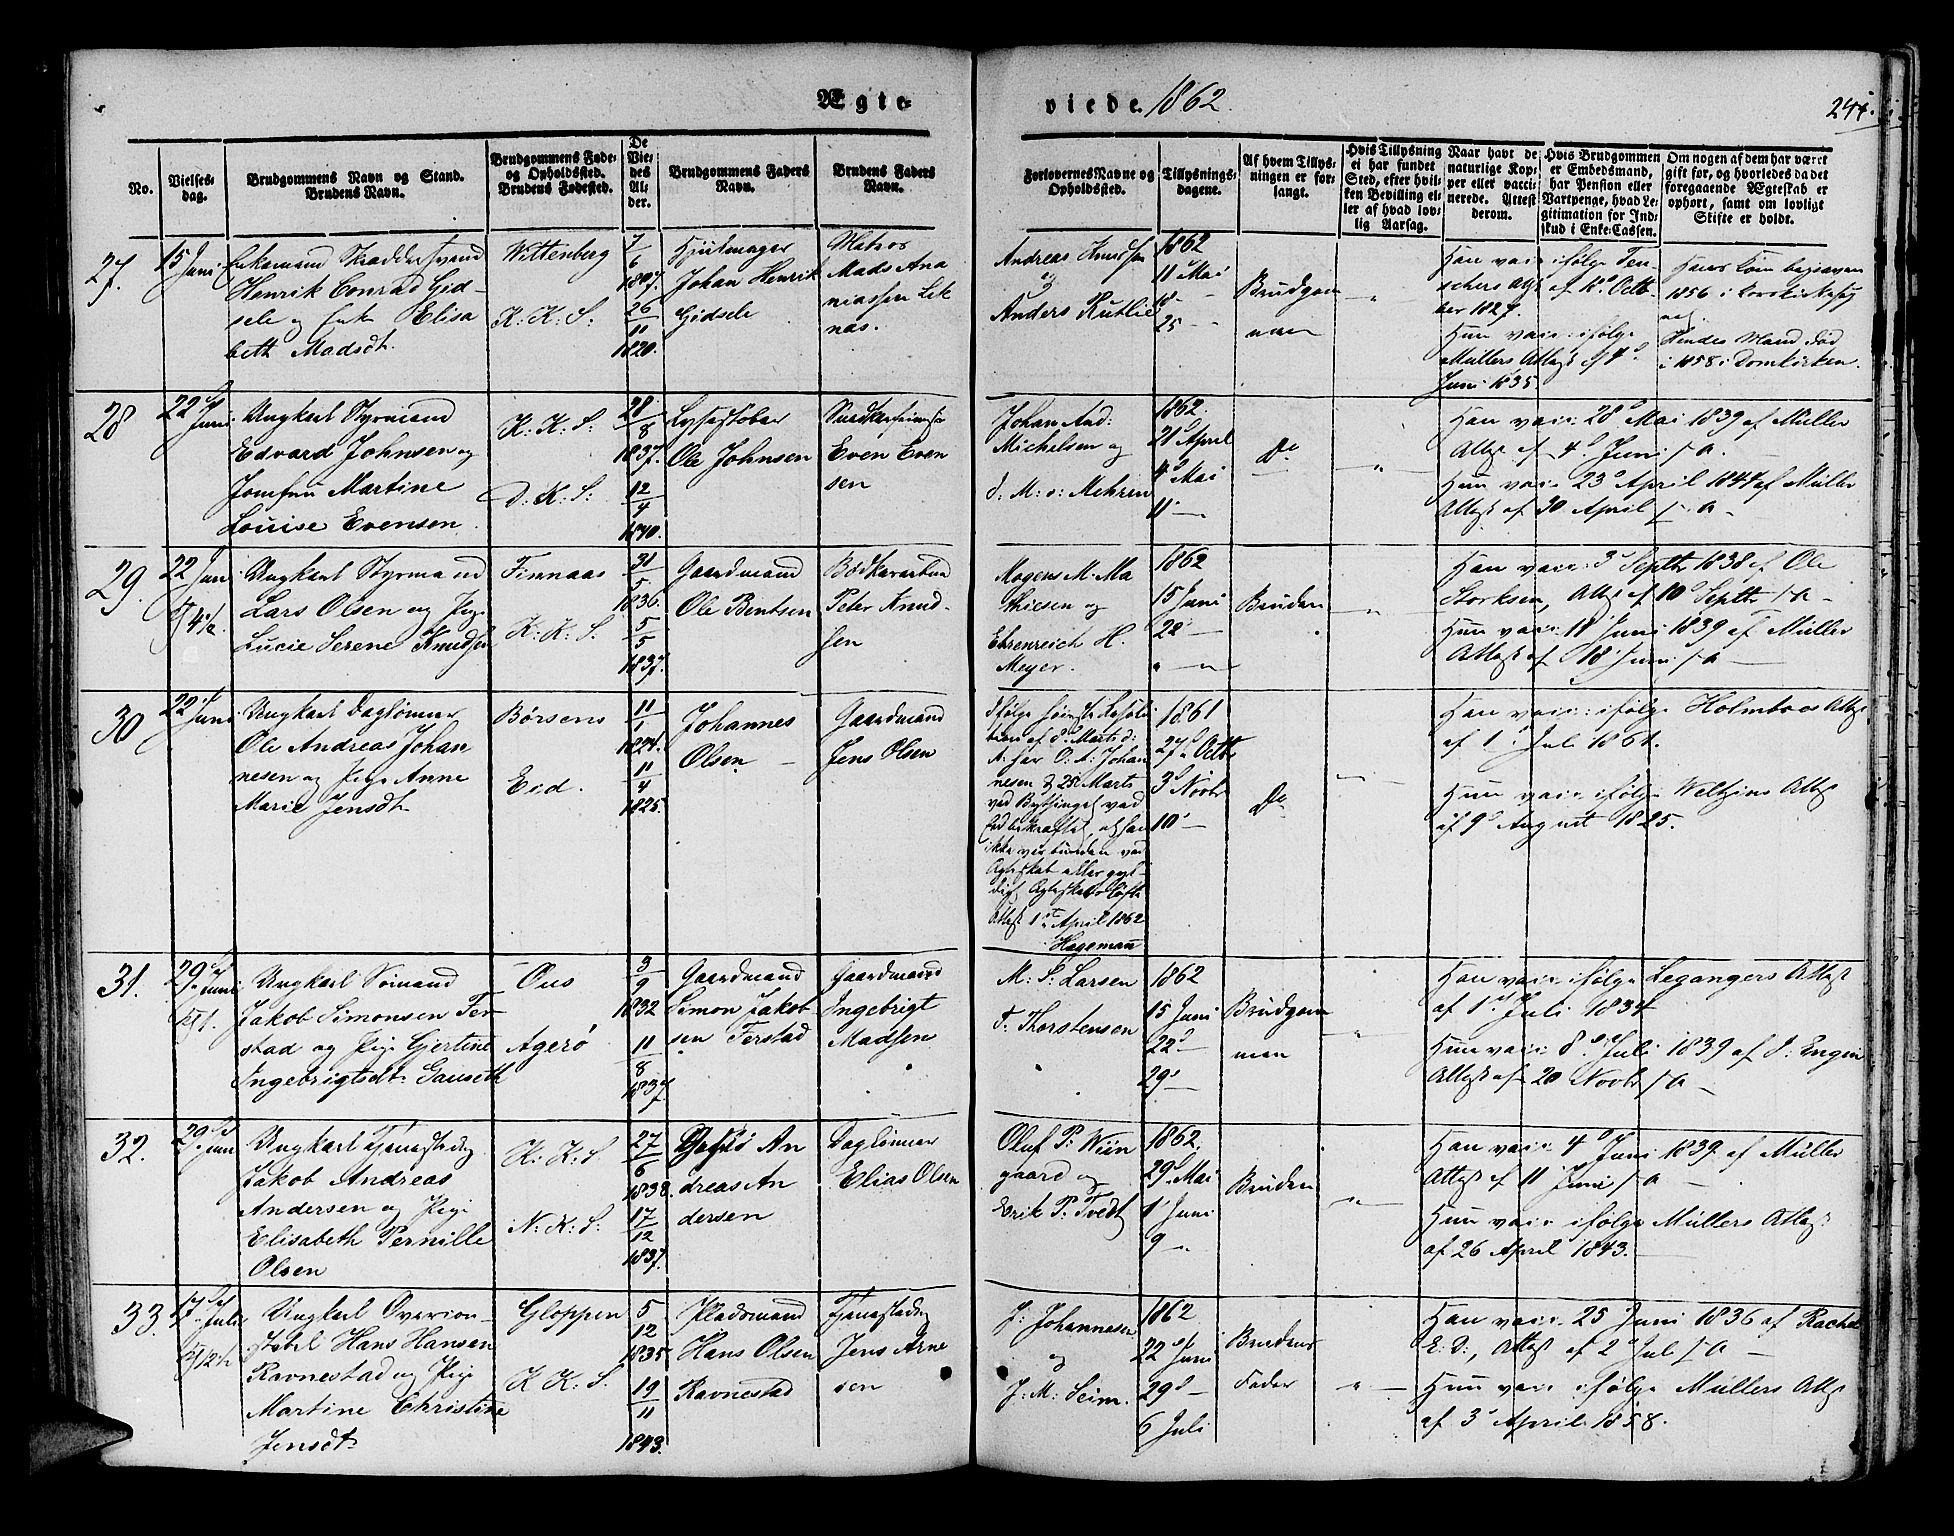 Ægte-
viede 1862.
No.
Vielses-
dag.
Brudgommens Navn og Stand.
Brudens Navn.
Brudgommens Føde-
og Opholdssted.
Brudens Fødested.
De
Vie-
des
Al-
der.
Brudgommens Faders
Navn.
Brudens Faders
Navn.
Forlovernes Navne og
Opholdssted.
Tillysnings-
dagene.
Af hvem Tillys-
ningen er for-
langt.
Hvis Tillysning
ei har fundet
Sted, efter hvil-
ken Bevilling el-
ler af hvad lov-
lig Aarsag.
Naar havt de
naturlige Kop-
per eller vacci-
nerede. Attest
derom.
Hvis Brudgommen
er Embedsmand,
har Pension eller
Vartpenge, hvad Le-
gitimation for Ind-
skud i Enke-Cassen.
Om nogen af dem har været
gift før, og hvorledes da det
foregaaende Ægteskab er
ophørt, samt om lovligt
Skifte er holdt.
27.
15 Juni
Enkemand Skræddersvend
Henrik Conrad Gid-
sele og Enke Elisa
beth Madsdt.
Wittenberg
K: K: S:
7/6
1807.
26/11
1820.
Hjulmager
Johan Henrik
Gidsele
Matros
Mads Ana
niassen Lek
nas.
Andreas Knudsen
og
Anders Rutlie
1862
11 Mai
18 -
25 -
Brudgom
men
Han vacc: ifølge Ten-
schers Attst af 10 Octb-
ber 1827.
Hun vacc: ifølge
Müllers Attest af 4
Juni 1835
Hans Kone begraven
1856 i Korskirken
og
Hendes Mand død
i 1858 i Domkirken.
28
22 Juni
Ungkarl Styrmand
Edvard Johnsen og
Jomfru Martine
Louise Evensen
K: K: S:
D: K: S:
28/8
1837.
12/4
1840.
Lysestøber
Ole Johnsen
Even Even
sen
Johan And:
Michelsen og
d: M: v: Mehren
1862.
21 April
4 Mai
11 -
Do
Han vacc: 28 Mai 1839 af Müller
Attst af 4 Juni s. A.
Hun vacc: 23 April 1844 af Müller
Attst af 30 April s. A.
29.
22 Juni
Kl 4 1/2.
Ungkarl Styrmand
Lars Olsen og Pige
Lucie Serene Knudsen
Finnaas
K: K: S.
31/5
1836.
5/5
1837.
Gaardmand
Ole Bentsen
Bødkersvend
Peter Knud-
sen
Mogens M. Ma
thiesen og
Ehrenreich H.
Meyer.
1862
15 Juni
22 -
Bruden
Han vacc: 3 Septb 1838 af Ole
Storksen, Attst af 10 Septb s. A -
Hun vacc: 11 Juni 1839 af Müller
Attst af 18 Juni s. A -
30
22 Juni
Ungkarl Daglønner
Ole Andreas Johan
nesen og Pige Anne
Marie Jensdt.
Børsens
Eid.
11/1
1824.
11/4
1825.
Johannes
Olsen -
Gaardmand
Jens Olsen
Ifølge høieste Resolu
tion af 8 Marts d:
A: har O: A: Johan
nesen d 25 Marts
ved Bythinget ved
Ed bekræftet, at han
ikke ver bunden ved
Ægteskab eller gyl-
digt Ægteskabsløfte
Attst 1 April 1862
Hageman
1861
27 Octb
3 Novbr
10 -
Do
Han vacc: ifølge Holmboes Attst
af 1 Juli 1861.
Hun vacc: ifølge Weltzins Attst
af 9 August 1825.
31.
29 Juni
Kl 1.
Ungkarl Sømand
Jakob Simonsen Fer-
stad og Pige Gjertine
Ingebrigtsdt. Gauseth
Ous
Agerø
3/9
1832
11/8
1837.
Gaardmand
Simon Jakob
sen Ferstad
Gaardmand
Ingebrigt
Madsen
M: S: Larsen
T: Thorstensen
1862
15 Juni
22 -
29 -
Brudgom
men
Han vacc: ifølge Legangers Attst
af 1 Juli 1834
Hun vacc: 8 Juli 1839 af J: Engen
Attst af 20 Novbr s. A -
32.
29 Juni
Ungkarl Tjenestedreng
Jakob Andreas
Andersen og Pige
Elisabeth Pernille
Olsen
K: K: S.
N: K: S:
27/6
1838.
17/12
1837.
An
dreas An
dersen
Daglønner
Elias Olsen
Oluf P: Wiin
gaard og
Erik P: Tvedt
1862.
29 Mai
1 Juni
9 -
Bruden
Han vacc: 4 Juni 1839 af Müller
Attst af 11 Juni s. A -
Hun vacc: ifølge Müllers Attst
af 26 April 1843. -
33.
17 Juli
Ungkarl Overcon-
stabel Hans Hansen
Ravnestad og Pige
Martine Christine
Jensdt.
Gloppen
K K: S.
5/12
1835
19/11
1843.
Pladsmand
Hans Olsen
Ravnestad
Jens Arne
sen
J: Johannesen
og
J: M: Seim.
1862
22 Juni
29 -
6 Juli
Brudens
Fader
Han vacc: 25 Juni 1836 af Rachel
E. D:, Attst af 2 Juli s. A -
Hun vacc: ifølge Müllers Attst
af 3 April 1858.